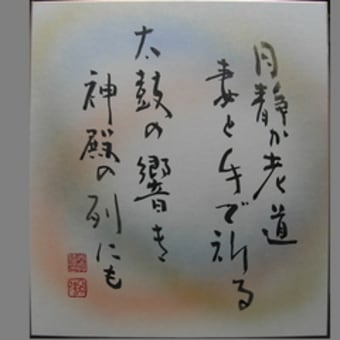 月静か老道
妻と手で祈る
太鼓の響き
神殿の列にも